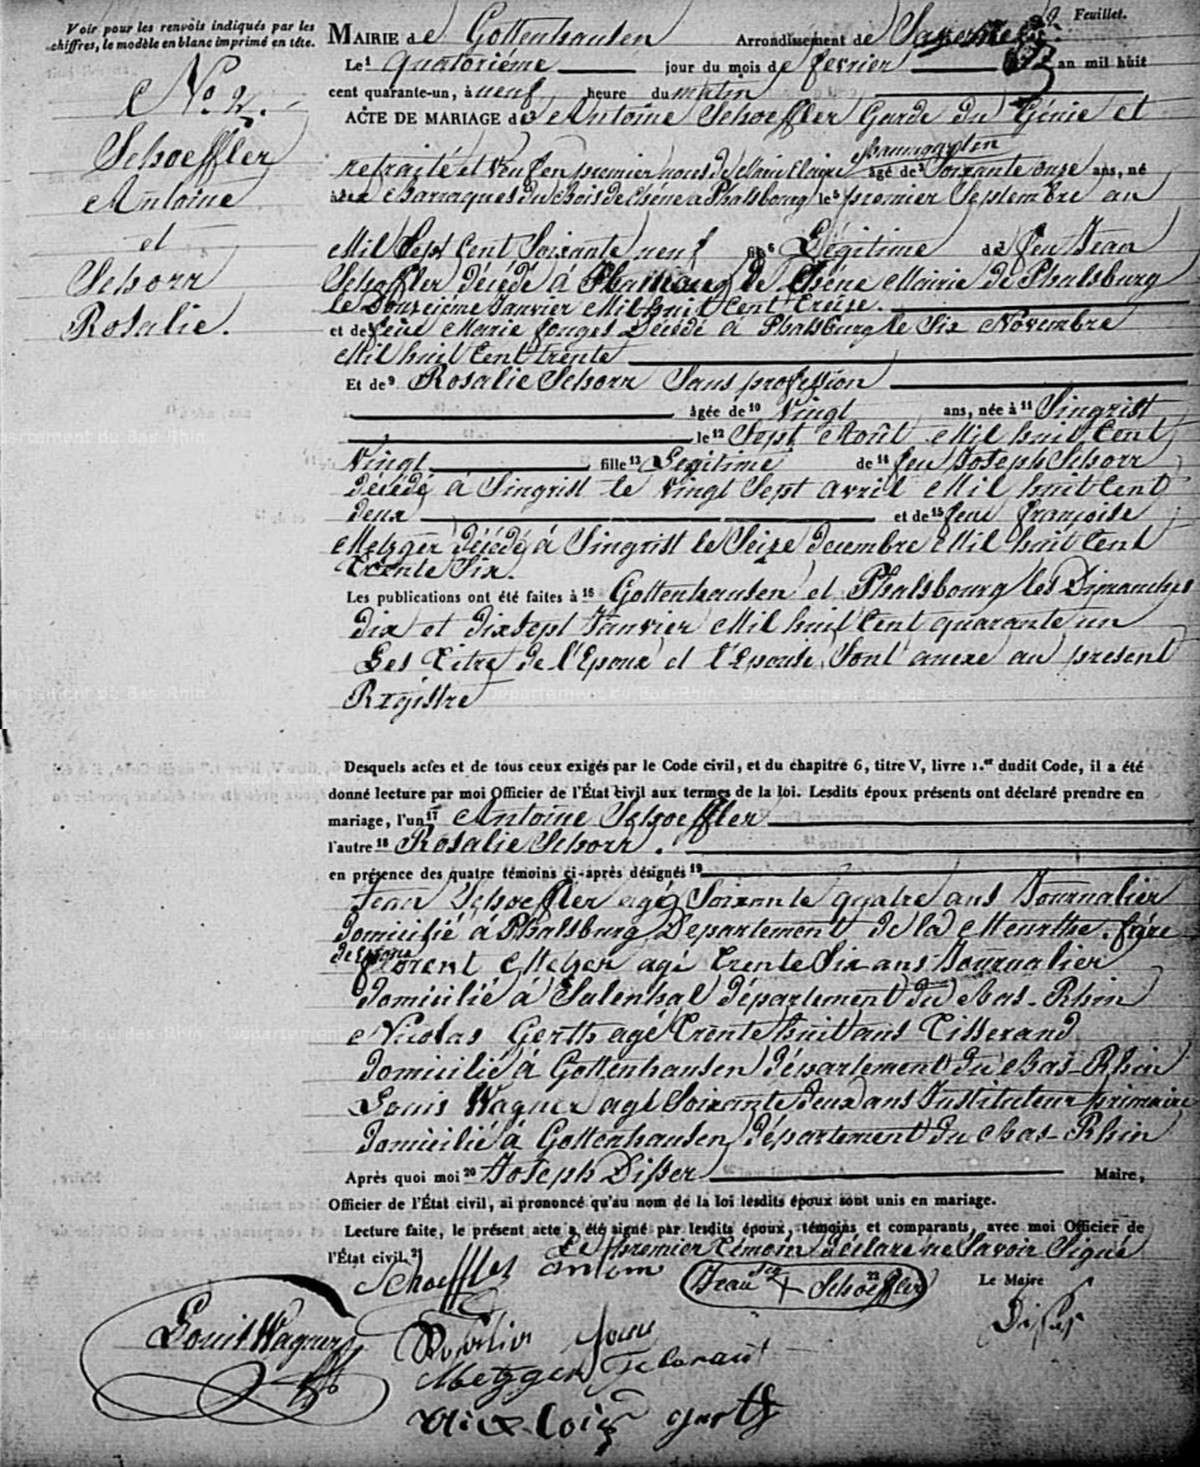 Voir pour les renvois indiqués par les
chiffres, le modèle en blanc imprimé en tête.
No. 2.
Schoeffler
Antoine
et
Schorr
Rosalie.
Feuillet.
MAIRIE de Gottenhausen Arrondissement de Saverne
Le 1 quatorième jour du mois de fevrier an mil huit
cent quarante-un, à neuf heure du matin
ACTE DE MARIAGE de Antoine Schoeffler Garde du Génie et
Baumgarten
retraité et Veuf en premier noces de Marie Claire âgé de Soixante onze ans, né
aux Barraques du Bois de Chéne a Phalsbourg le 5 premier Septembre an
Mil Sept Cent Soixante neuf fils 6 Légitime de feu Jean
Schoffler décédé à de Chéne Mairie de Phalsburg
le Douzeiéme Janvier Mil huit Cent Treize.
et de feue Marie fouges Décédé à Phalsburg le Six Novembre
Mil huit Cent trente
Et de 9 Rosalie Schorr Sans profession
âgée de 10 Vingt ans, née à 11 Singrist
le 12 Sept Août Mil huit Cent
Vingt fille 13 Legitime de 14 feu Joseph Schorr
décédé à Singrist le vingt Sept avril Mil huit Cent
deux et de 15 feue françoise
Metzger décédé à Singrist le Seize decembre Mil huit Cent
Trente Six.
Les publications ont été faites à 16 Gottenhausen et Phalsbourg les Dimanches
dix et dix Sept Janvier Mil huit Cent quarante un
Les Titre de l'Epoux et l'Epouse Sont anexe au present
Régistre
Desquels actes et de tous ceux exigés par le Code civil, et du chapitre 6, titre V, livre 1.er dudit Code, il a été
donné lecture par moi Officier de l'État civil aux termes de la loi. Lesdits époux présents ont déclaré prendre en
mariage, l'un 17 Antoine Schoeffler
l'autre 18 Rosalie Schorr.
en présence des quatre témoins ci-après désignés 19
Jean Schoeffler agé Soixante quatre ans Journalier
domicilié à Phalsburg Departement de la Meurthe. frére
de Epoux
florent Metzer agé Trente Six ans Journalier
domicilié à Salenthal département du Bas-Rhin
Nicolas Gerth agé Trente huit ans Tisserand
domicilié à Gottenhausen département du Bas-Rhin
Louis Wagner agé Soixante deux ans Instituteur primaire
domicilié à Gottenhausen département du Bas-Rhin
Après quoi moi 20 Joseph Disser Maire,
Officier de l'État civil, ai prononcé qu'au nom de la loi lesdits époux sont unis en mariage.
Lecture faite, le présent acte a été signé par lesdits époux, témoins et comparants, avec moi Officier de
l'État civil. 21 Le premier témoin déclare ne Savoir Signé
Schoeffler antoni Jean sig + Schoeffler 22 Le Maire
Disser
Louis Wagner
Metzger